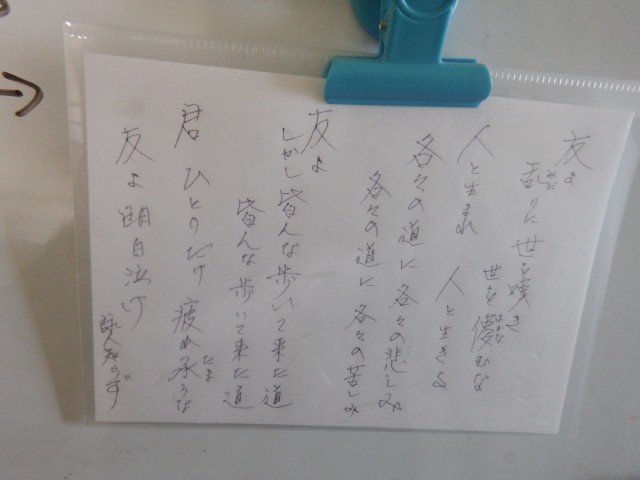 友よ
乱りに世を嘆き
世を儚むな
人と生まれ 人と生きる
各々の道に各々の悲しみ
各々の道に 各々の苦しみ
友よ
しかし皆んな歩いて来た道
皆んな歩いて来た道
君 ひとりだけ 疲れ承うな
友よ 明日泣け
詠人知らず